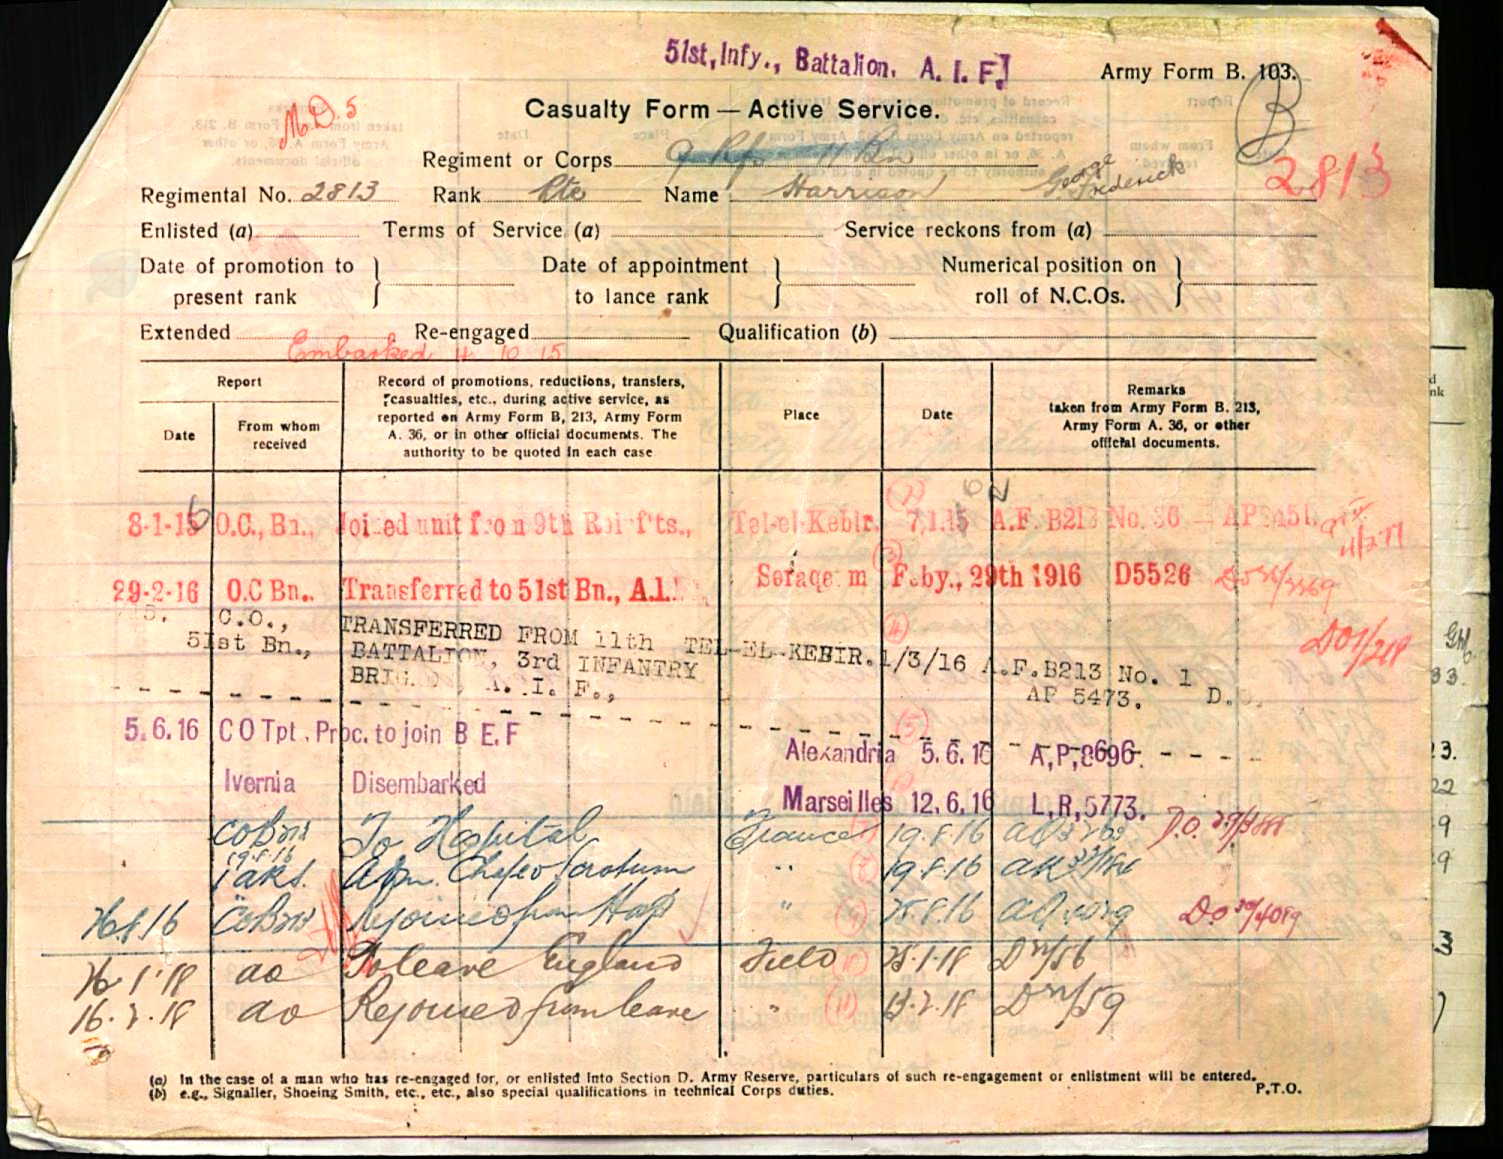 51st, Infy., Battalion. A. I. F.
Army Form B. 103.
M.D. 5
Casualty Form — Active Service.
B
Regiment or Corps 9 Rfs 11 Bn
2813
Regimental No. 2813 Rank Pte Name Harrison George Frederick
Enlisted (a) Terms of Service (a) Service reckons from (a)
Date of promotion to present rank } Date of appointment to lance rank } Numerical position on roll of N.C.Os. }
Extended Re-engaged Qualification (b)
Embarked 4 10 15
Report
Date
From whom received
Record of promotions, reductions, transfers,
casualties, etc., during active service, as
reported on Army Form B, 213, Army Form
A. 36, or in other official documents. The
authority to be quoted in each case
Place
Date
Remarks
taken from Army Form B. 213,
Army Form A. 36, or other
official documents.
8-1-16 O.C., Bn., Joined unit from 9th Reinf'ts., Tel-el-Kebir. 7.1.16 A.F. B213 No. 36 — AP
29-2-16 O.C Bn.. Transferred to 51st Bn., A.I. Serapeum Feby., 29th 1916 D5526
C.O., TRANSFERRED FROM 11th TEL-EL-KEBIR. 1/3/16 A.F.B213 No. 1
51st Bn., BATTALION, 3rd INFANTRY AP 5473. D.O.
BRIGADE, A. I. F.,
5.6.16 C O Tpt. Proc. to join B E.F Alexandria 5.6.16 A,P,8696.
Ivernia Disembarked Marseilles 12.6.16 L,R,5773.
CO Bn To Hospital France 19.8.16
19.8.16
" 19.8.16
26.8.16 CO Bn Rejoined from Hosp " 25.8.16
26.1.18 do To leave England Field 25.1.18 D 21/56
16.2.18 do Rejoined from leave " 13.2.18 D 21/59
(a) In the case of a man who has re-engaged for, or enlisted into Section D. Army Reserve, particulars of such re-engagement or enlistment will be entered.
(b) e.g., Signaller, Shoeing Smith, etc., etc., also special qualifications in technical Corps duties.
P.T.O.